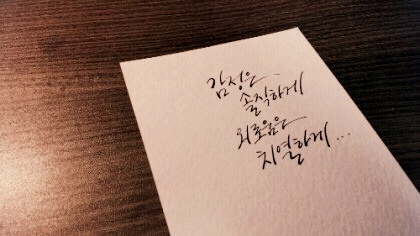 감정은
솔직하게
외로움은
치열하게...